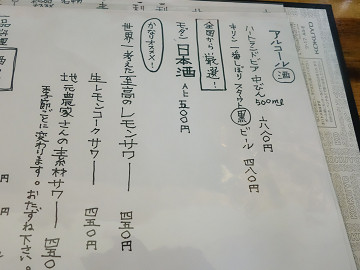 アルコール 酒
ハートランドビア 中びん 500ml 六八〇円
キリン一番しぼりスタウト 黒 ビール 四八〇円
全国から厳選！
モダン日本酒 A 五〇〇円
かなりオススメ！
世界一考えた至高のレモンサワー 四五〇円
生レモンコークサワー 四五〇円
地元農家さんの素材サワー 四五〇
季節ごとに変わります。おたずね下さい。
一品料理